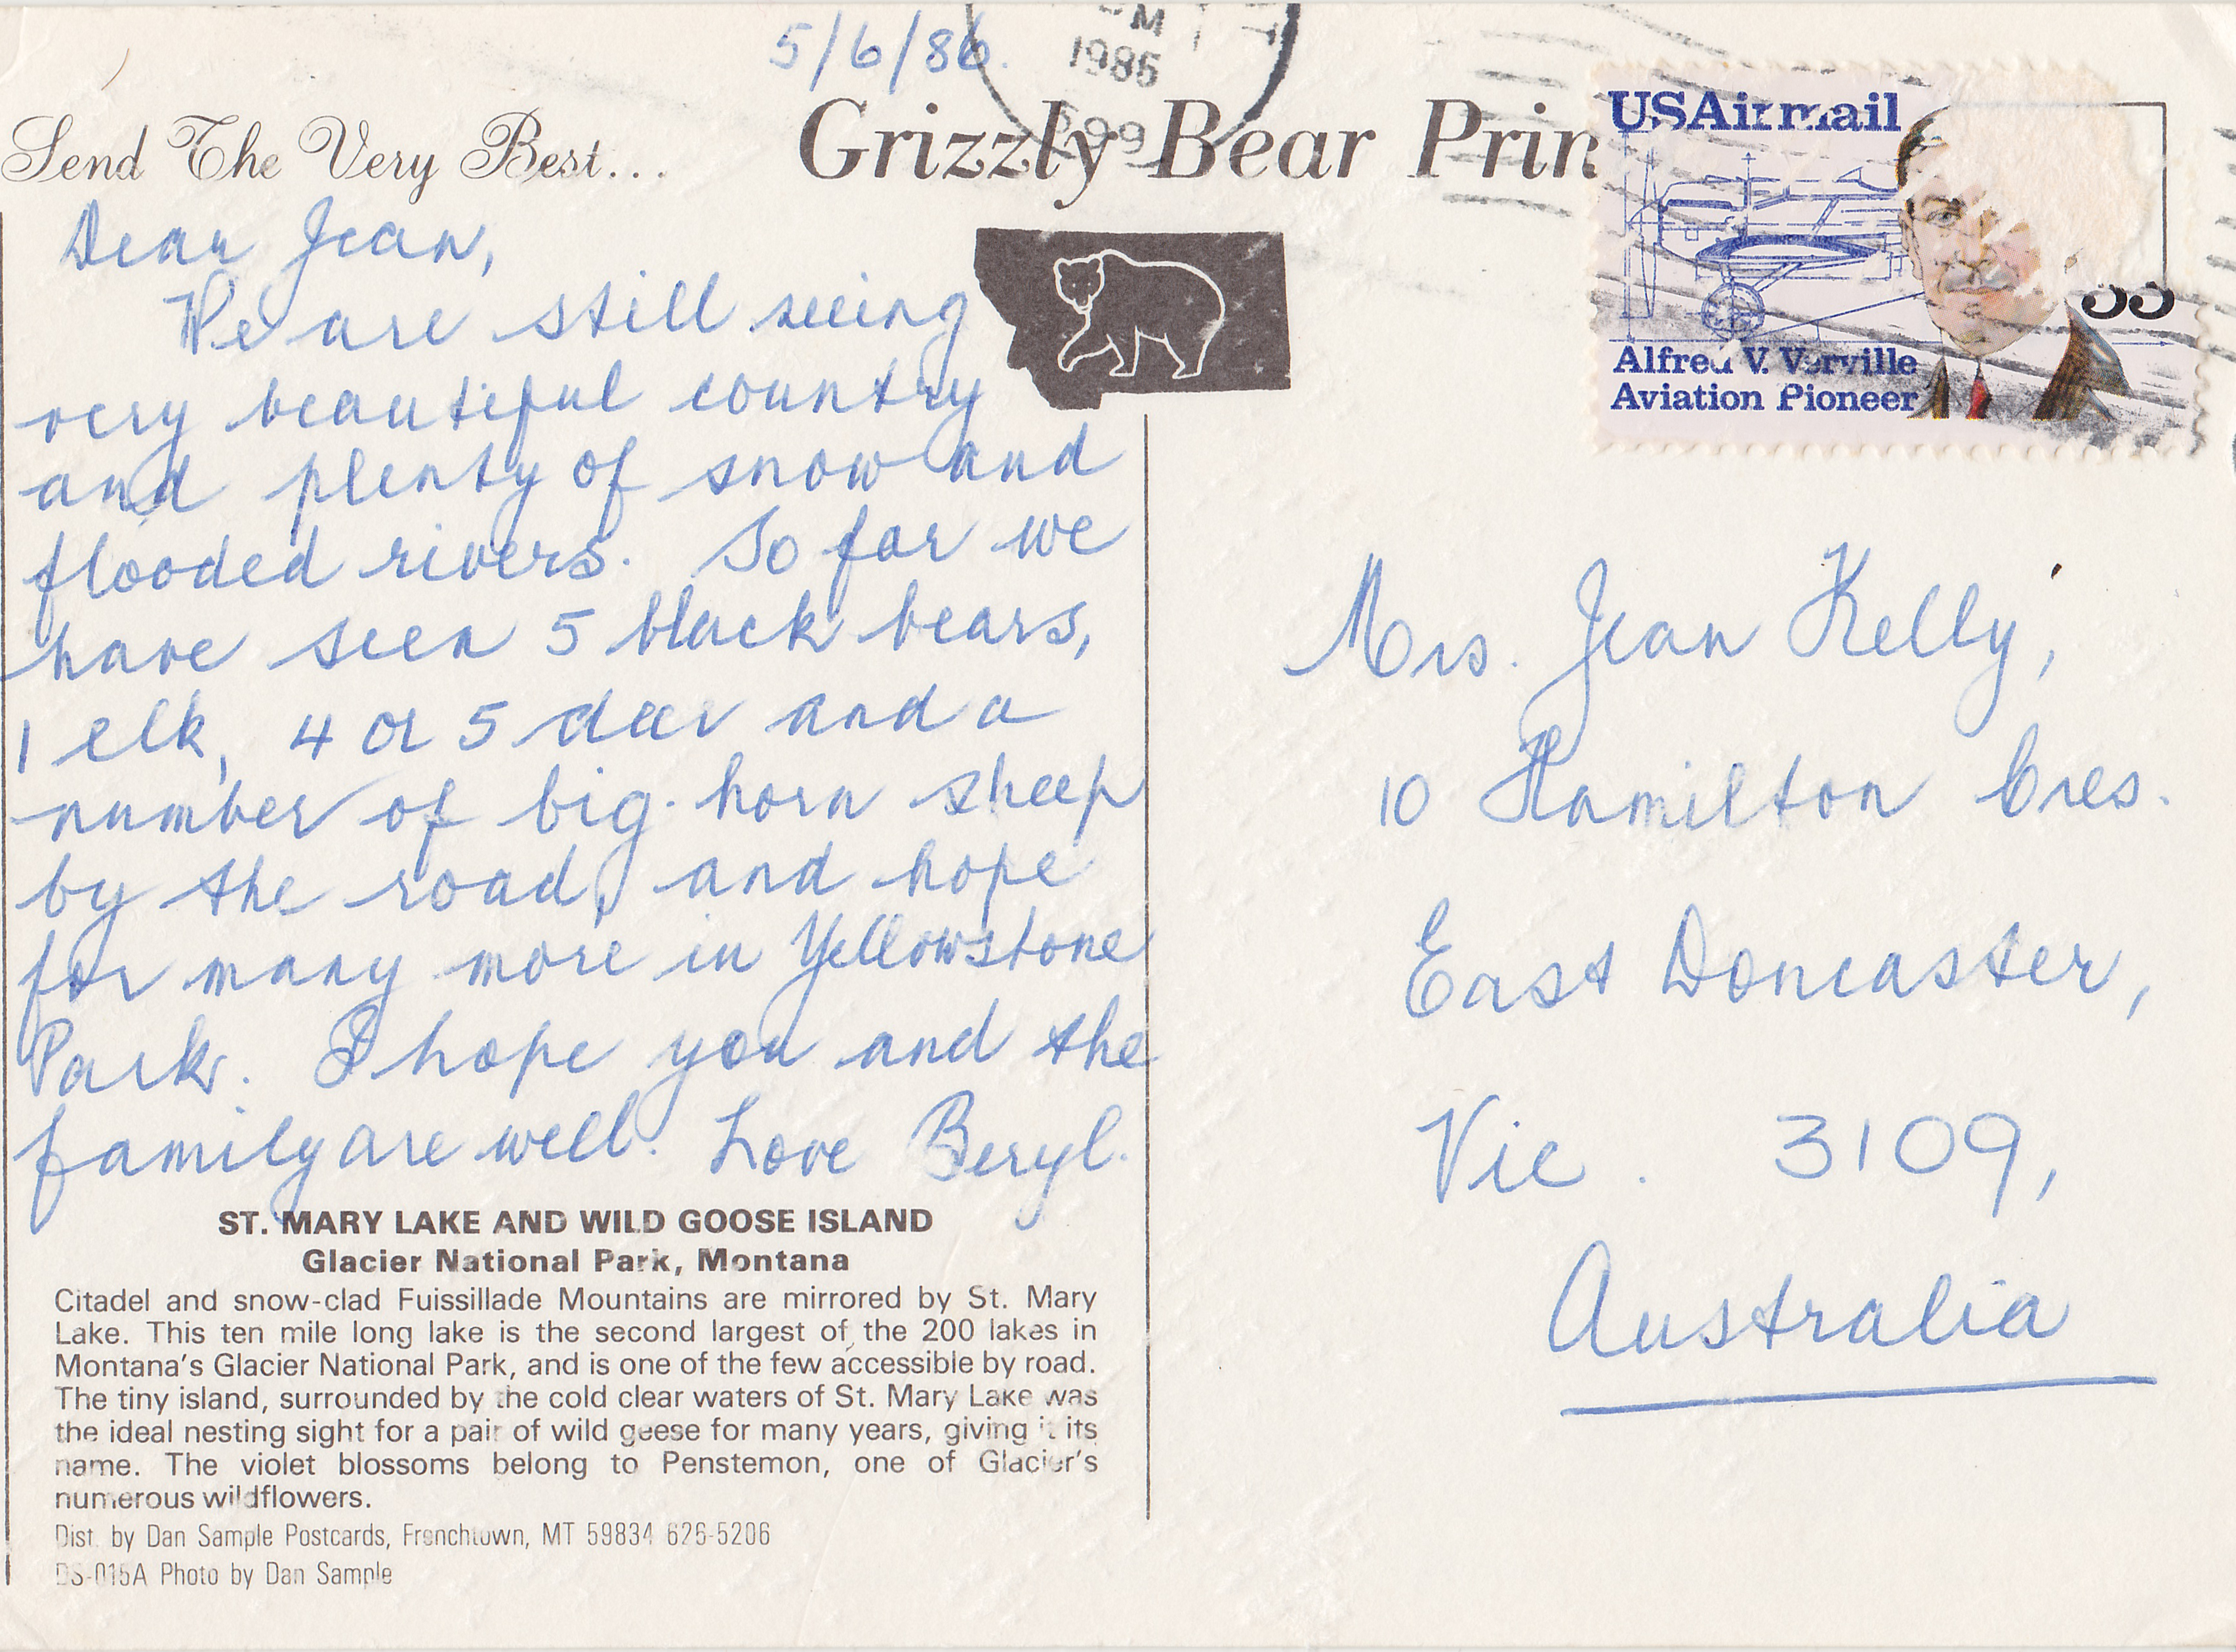 5/6/86.
PM
1986
599
Send The Very Best...
Grizzly Bear Prin
USAirmail
33
Alfred V. Verville
Aviation Pioneer
Dear Jean,
We are still seeing
very beautiful country
and plenty of snow and
flooded rivers. So far we
have seen 5 black bears,
1 elk, 4 or 5 deer and a
number of big-horn sheep
by the road, and hope
for many more in Yellowstone
Park. I hope you and the
family are well. Love Beryl.
Mrs. Jean Kelly,
10 Hamilton Cres.
East Doncaster,
Vic. 3109,
Australia
ST. MARY LAKE AND WILD GOOSE ISLAND
Glacier National Park, Montana
Citadel and snow-clad Fuissillade Mountains are mirrored by St. Mary
Lake. This ten mile long lake is the second largest of the 200 lakes in
Montana's Glacier National Park, and is one of the few accessible by road.
The tiny island, surrounded by the cold clear waters of St. Mary Lake was
the ideal nesting sight for a pair of wild geese for many years, giving it its
name. The violet blossoms belong to Penstemon, one of Glacier's
numerous wildflowers.
Dist. by Dan Sample Postcards, Frenchtown, MT 59834 626-5206
DS-015A Photo by Dan Sample